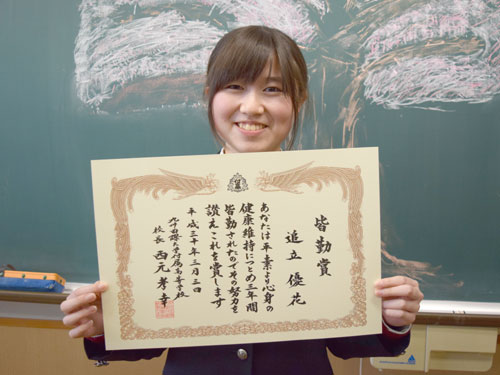 皆勤賞
追立 優花
あなたは平素より心身の
健康維持につとめ三年間
皆勤されたのでその努力を
讃えこれを賞します
平成三十年三月三日
九州国際大学付属高等学校
校長 西元孝幸